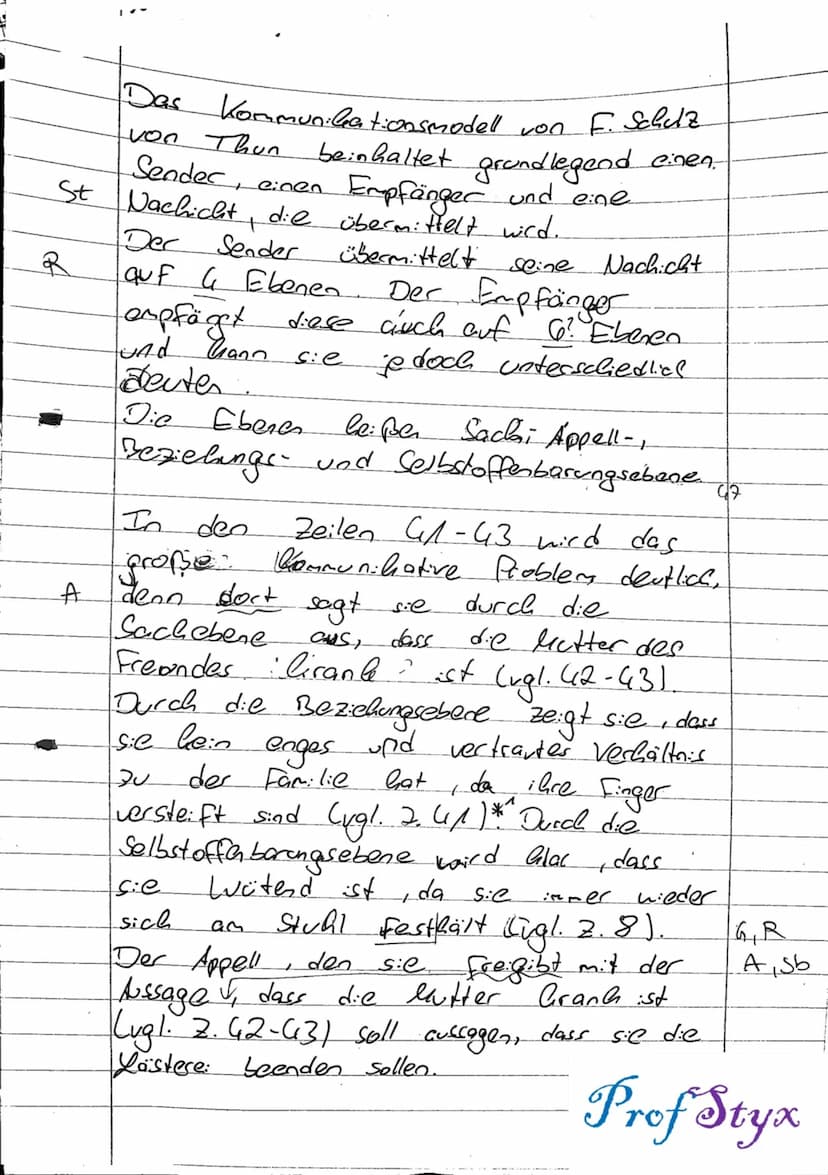 Das Kommunikationsmodell von F. Schulz
von Thun beinhaltet grundlegend einen
Sender, einen Empfänger und eine
St Nachicht, die übermittelt wird.
Der Sender übermittelt seine Nachicht
R auf 4 Ebenen. Der Empfänger
empfägt diese auch auf 4? Ebenen
und kann sie jedoch unterschiedlich
deuten.
Die Ebenen heißen Sach-, Appell-,
Beziehungs- und Selbstoffenbarungsebene.
47
In den Zeilen 41-43 wird das
große kommunikative Problem deutlich,
A denn dort sagt sie durch die
Sachebene aus, dass die Mutter des
Freundes krank ist (vgl. 42-43).
Durch die Beziehungsebene zeigt sie, dass
sie kein enges und vertrautes Verhältnis
zu der Familie hat, da ihre Finger
versteift sind (vgl. Z. 41)*1. Durch die
Selbstoffenbarungsebene wird klar, dass
sie wütend ist, da sie immer wieder
sich am Stuhl festhält (vgl. Z. 8). G, R
Der Appell, den sie freigibt mit der A, Sb
Aussage, dass die Mutter krank ist
(vgl. Z. 42-43) soll aussagen, dass sie die
Lästerei beenden sollen.
Prof Styx